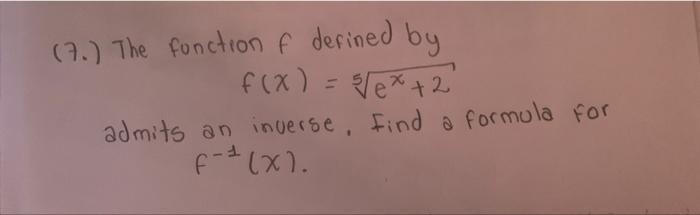 (7.) The function f defined by
f(x) = ⁵√(eˣ + 2)
admits an inverse. Find a formula for
f⁻¹(x).